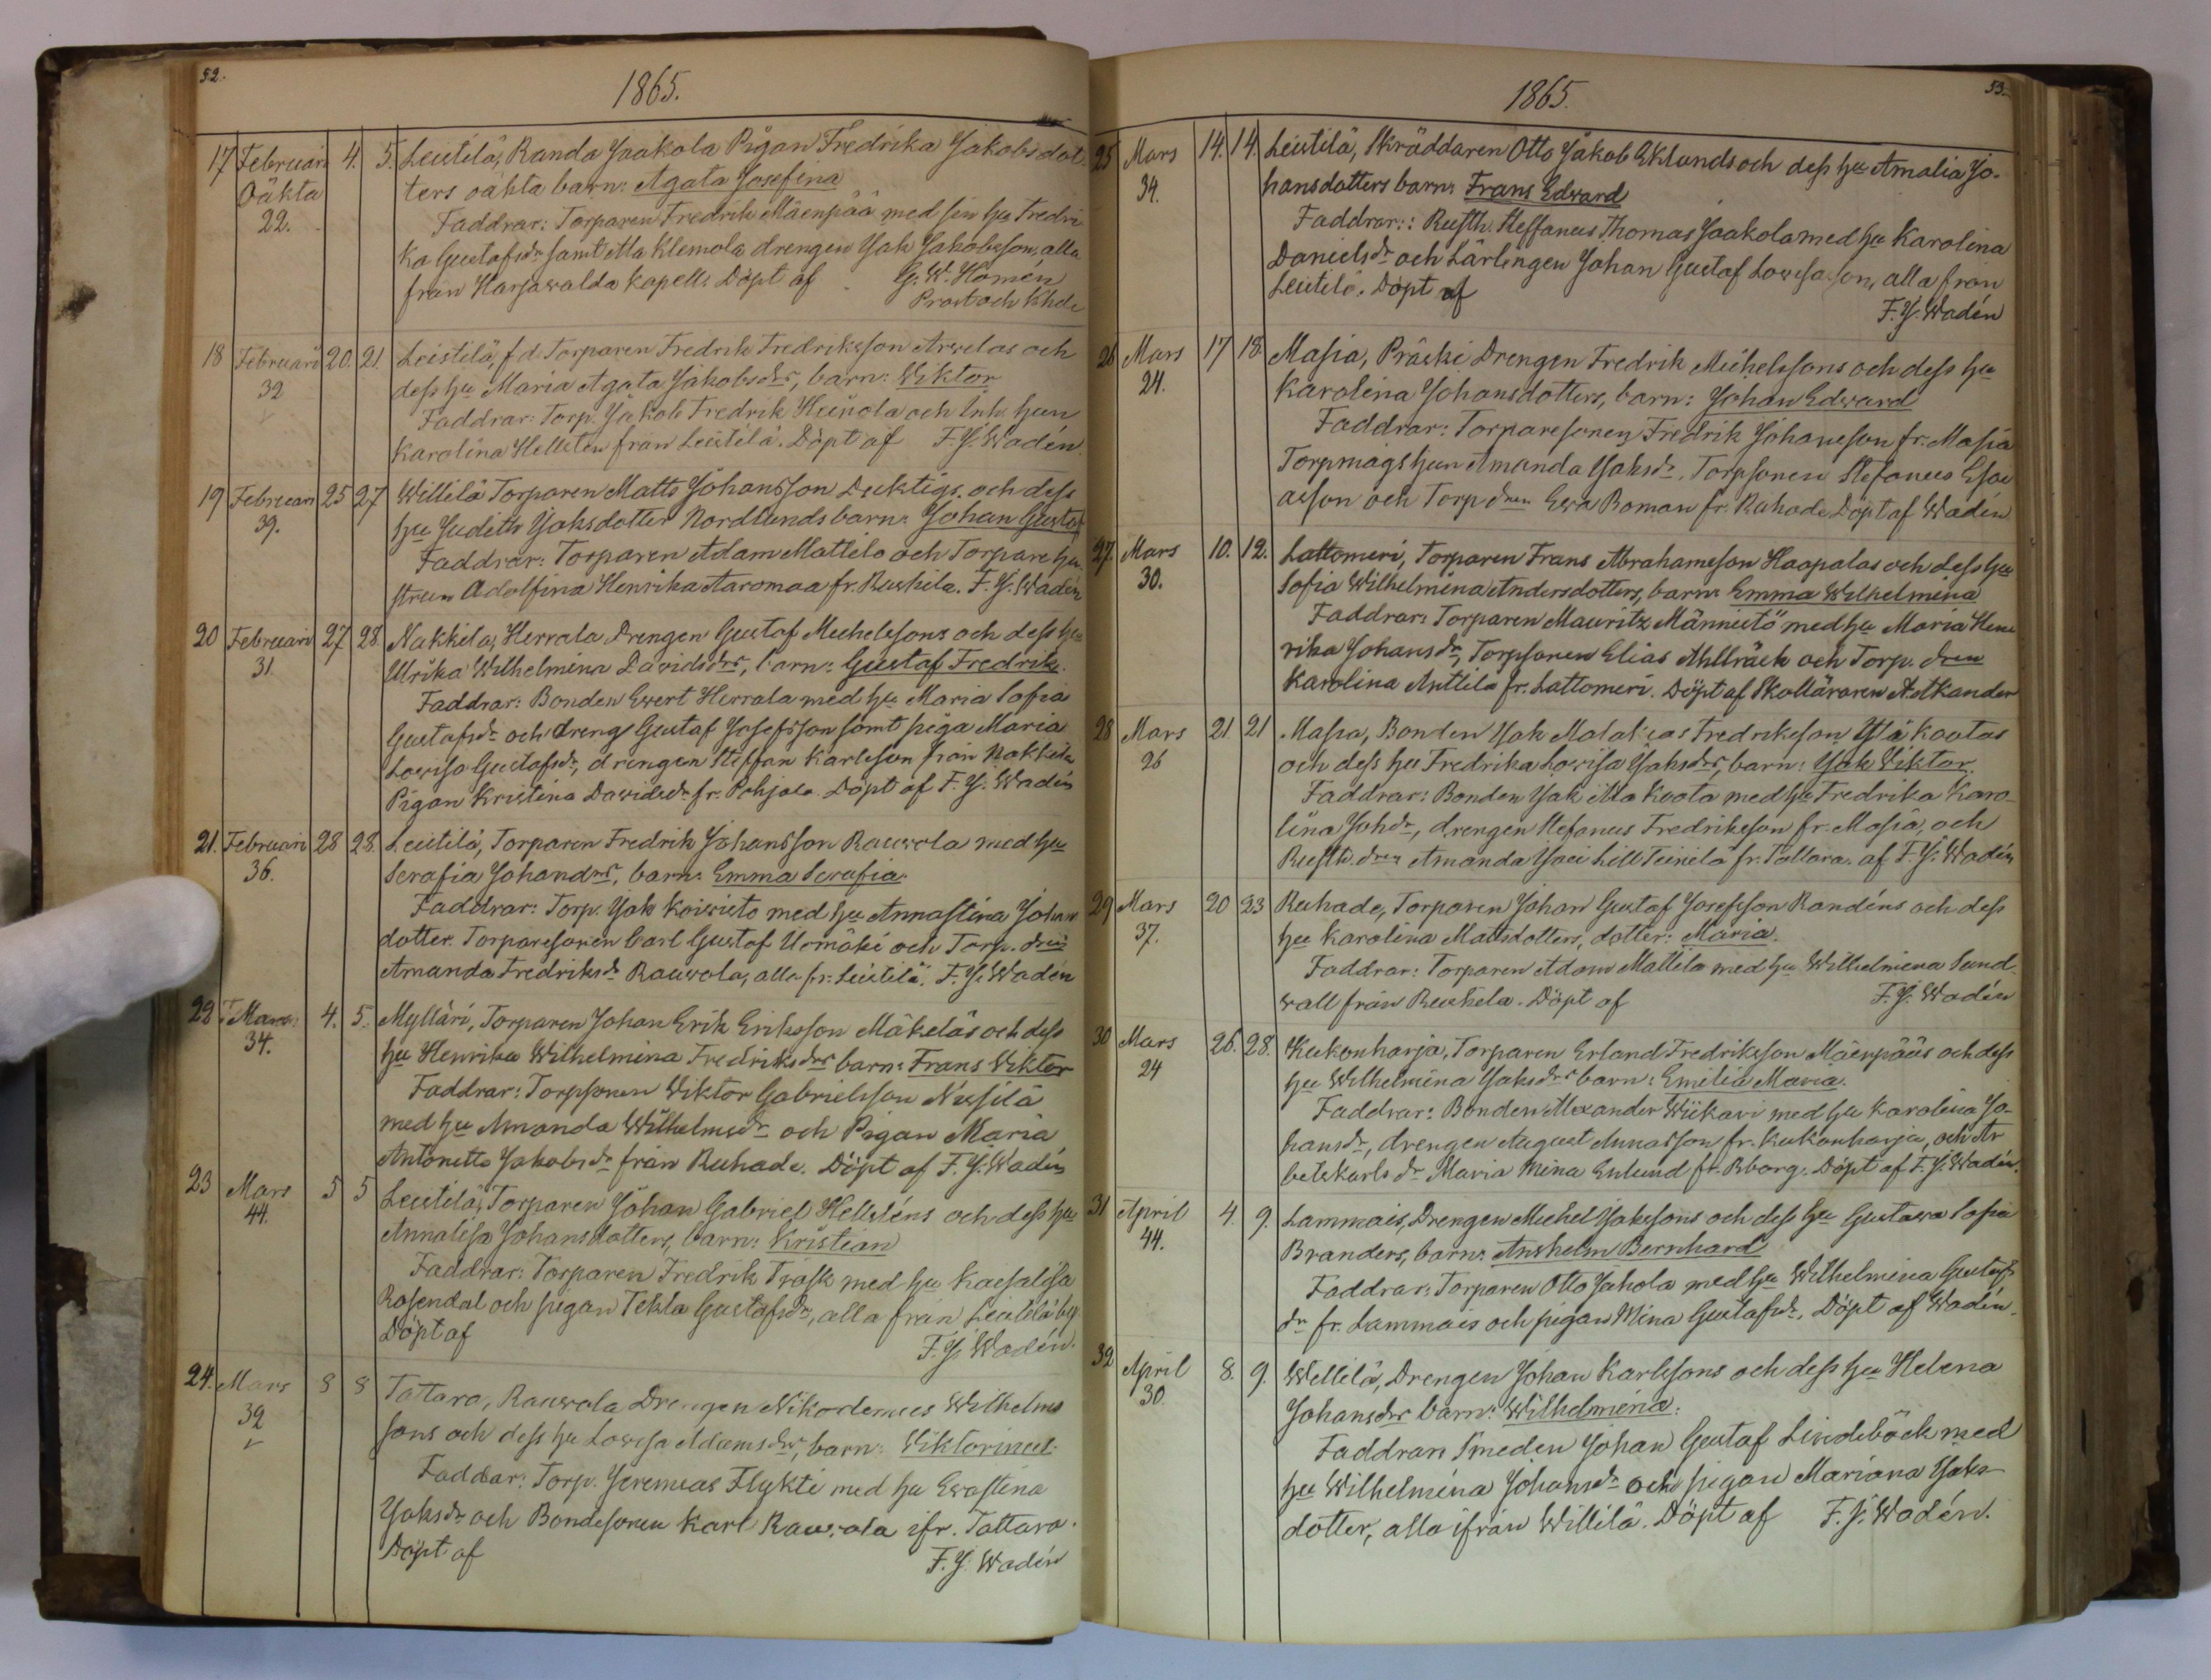 52.
1865.
17 Februari 4. 5. Leistilä, Randa Jaakola Pigan Fredrika Jakobsdot
Oäkta ters oäkta barn: Agata Josefina
22. Faddrar: Torparen Fredrik Mäenpää med sin hu Fredri
ka Gustafsdr samt Ala Klemola drengen Isak Jakobsson, alla
från Harjawalda kapell. Döpt af G. W. Homén
Prost och Khde
18 Februari 20. 21. Leistilä, f.d. Torparen Fredrik Fredriksson Arwelas och
32 dess hu Maria Agata Jakobsdrs, barn: Viktor
Faddrar: Torp. Jakob Fredrik Heinola och Inh. hun
Karolina Hellsten från Leistilä. Döpt af F. J. Wadén.
19 Februari 25 27 Willilä Torparen Matts Johansson Ducktigs. och dess
39. hu Judith Isaksdotter Nordlunds barn: Johan Gustaf
Faddrar: Torparen Adam Mattila och Torpare hu
strun Adolfina Henrika Aaromaa fr. Ruskila. F. J. Wadén
20 Februari 27 28. Nakkila, Herrala Drengen Gustaf Michelssons och dess hu
31 Ulrika Wilhelmina Davidsdrs, barn: Gustaf Fredrik.
Faddrar: Bonden Evert Herrala med hu Maria Sofia
Gustafsdr och dreng Gustaf Josefsson samt piga Maria
Lovisa Gustafsdr, drengen Steffan Karlsson från Nakkila
Pigan Kristina Davidsdr fr. Pohjala. Döpt af F. J. Wadén
21. Februari 28 28. Leistilä, Torparen Fredrik Johansson Rauvola med hu
36. Serafia Johandrs, barn: Emma Serafia.
Faddrar: Torp. Isak Koivisto med hu Annastina Johan
dotter. Torparesonen Carl Gustaf Uomäki och Torp. drn
Amanda Fredriksdr Rauvola, alla fr. Leistilä. F. J. Wadén
22 Mars 4. 5. Mylläri, Torparen Johan Erik Eriksson Mäkeläs och dess
34. hu Henrika Wilhelmina Fredriksdrs barn: Frans Viktor
Faddrar: Torpsonen Viktor Gabrielsson
med hu Amanda Wilhelmsdr och Pigan Maria
Antonetta Jakobsdr från Ruhade. Döpt af F. J. Wadén
23 Mars 5 5 Leistilä, Torparen Johan Gabriel Hellsténs och dess hu
44. Annalisa Johansdotters, barn: Kristian
Faddrar: Torparen Fredrik Träsk med hu Kaisalisa
Rosendal och pigan Tekla Gustafsdr, alla från Leistilä by
Döpt af F. J. Wadén.
24. Mars 8 8 Tattara, Rauvola Drengen Nikodemus Wilhelms
32 sons och dess hu Lovisa Adamsdrs, barn: Viktorinus.
Faddrar: Torp. Jeremias Flykti med hu Evastina
Isaksdr och Bondesonen Karl Rauvola ifr. Tattara.
Döpt af F. J. Wadén
53.
1865.
25 Mars 14. 14. Leistilä, Skräddaren Otto Jakob Eklunds och dess hu Amalia Jo-
34. hansdotters barn: Frans Edvard
Faddrar: Rusth. Steffanus Thomas Jaakola med hu Karolina
Danielsdr och Lärlingen Johan Gustaf Lovisason, alla från
Leistilä. Döpt af
F. J. Wadén
26 Mars 17 18. Masia, Präski Drengen Fredrik Michelssons och dess hu
24. Karolina Johansdotters, barn: Johan Edvard
Faddrar: Torparesonen Fredrik Johansson fr. Masia
Torpmågs hun Amanda Isaksdr, Torpsonen Stefanus Esai
asson och Torp drn Eva Boman fr. Ruhade Döpt af Wadén
27. Mars 10. 12. Lattomeri, Torparen Frans Abrahamsson Haapalas och dess hu
30. Sofia Wilhelmina Andersdotters, barn: Emma Wilhelmina
Faddrar: Torparen Mauritz Männistö med hu Maria Hen
rika Johansdr, Torpsonen Elias Ahlbäck och Torp. drn
Karolina Anttila fr. Lattomeri. Döpt af Skolläraren A. Akander
28 Mars 21 21 Masia, Bonden Isak Malakias Fredriksson Ylä Kootas
26 och dess hu Fredrika Lovisa Isaksdrs, barn: Isak Viktor.
Faddrar: Bonden Isak Ala Koota med hu Fredrika Karo-
lina Johdr, drengen Stefanus Fredriksson fr. Masia, och
Rusth. drn Amanda Isaci Lill Teinilä fr. Tattara. af F. J. Wadén
29 Mars 20 23 Ruhade, Torparen Johan Gustaf Josefsson Randéns och dess
37. hu Karolina Mattsdotters, dotter: Maria.
Faddrar: Torparen Adam Mattila med hu Wilhelmina Sund
wall från Ruskila. Döpt af F. J. Wadén
30 Mars 26. 28. Kukonharja, Torparen Erland Fredriksson Mäenpääs och dess
24 hu Wilhelmina Isaksdrs barn: Emilia Maria.
Faddrar: Bonden Alexander Wiikari med hu Karolina Jo-
hansdr, drengen August Annasson fr. Kukonharja, och Ar
betskarls dr Maria Mina Enlund fr. Bborg. Döpt af F. J. Wadén.
31 April 4. 9. Lammais, Drengen Michel Isakssons och dess hu Gustava Sofia
44. Branders, barn: Anshelm Bernhard
Faddrar: Torparen Otto Jakola med hu Wilhelmina Gustafs
dr fr. Lammais och pigan Mina Gustafsdr. Döpt af Wadén.
32 April 8. 9. Willilä, Drengen Johan Karlssons och dess hu Helena
30. Johansdrs barn: Wilhelmina.
Faddrar: Smeden Johan Gustaf Lindebäck med
hu Wilhelmina Johansdr och pigan Mariana Isaks-
dotter, alla ifrån Willilä. Döpt af F. J. Wadén.